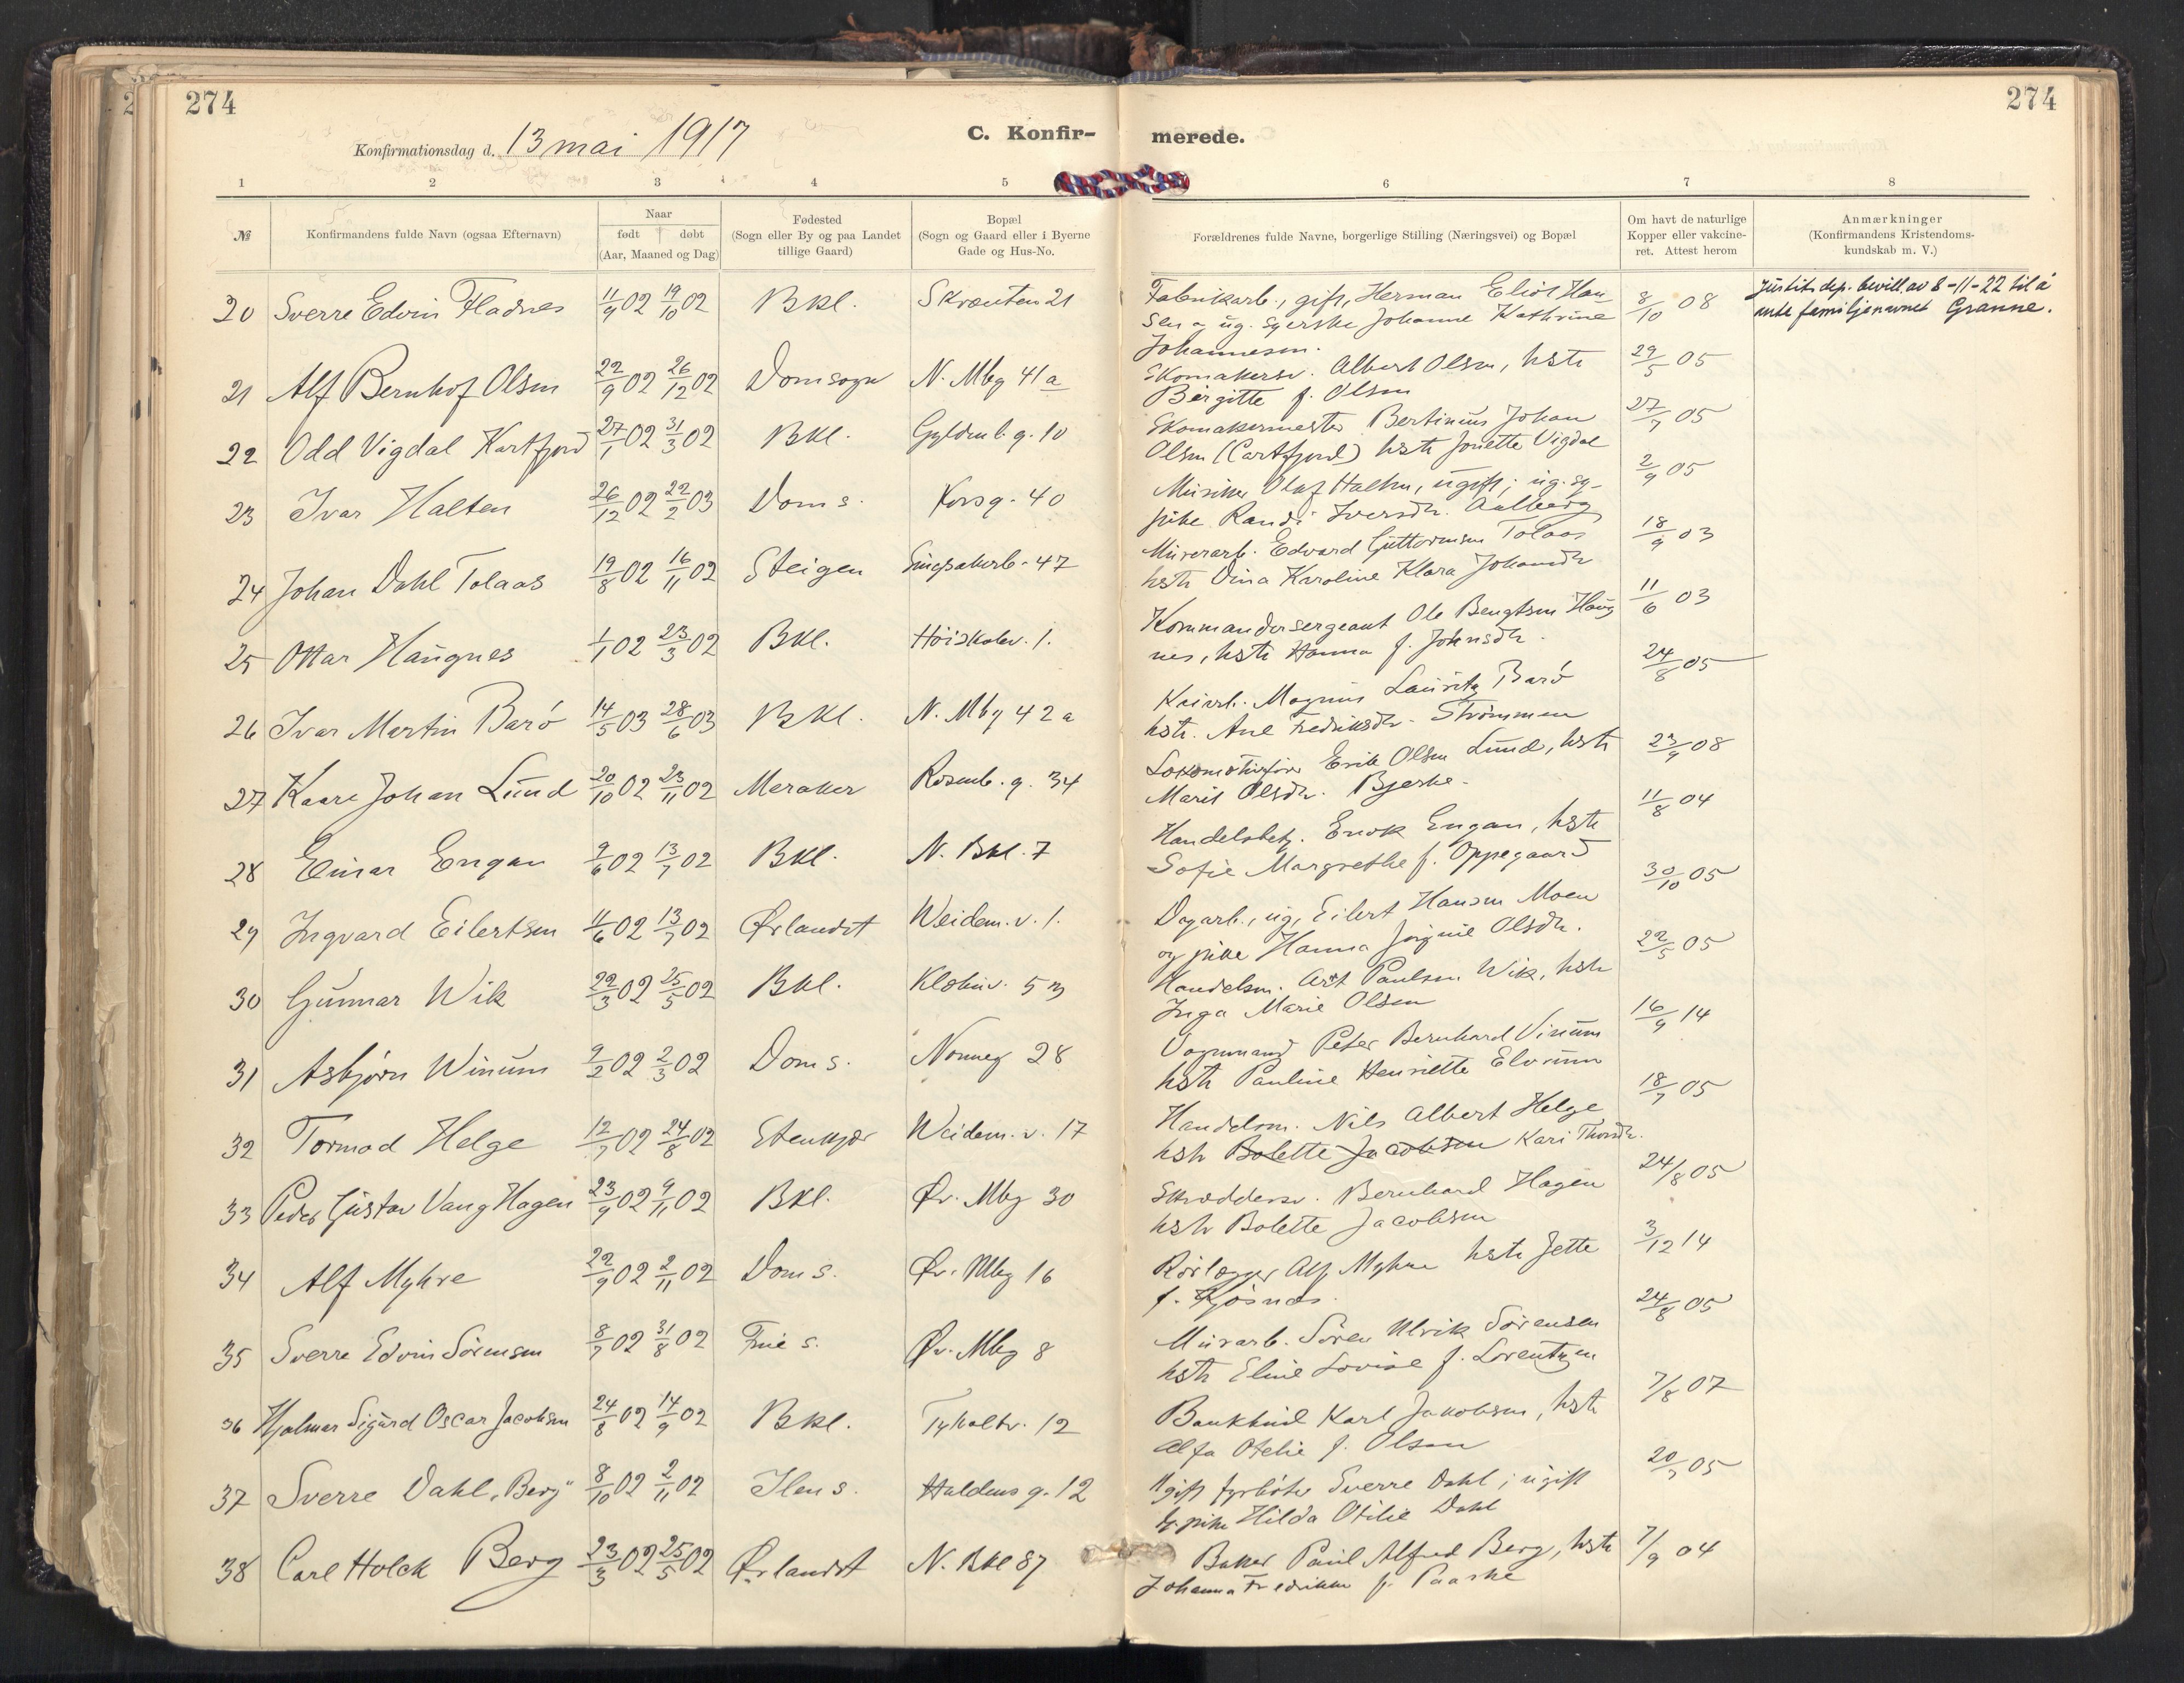 274
274
Konfirmationsdag d. 13 mai 1917
C. Konfir-
merede.
1 2 3 4 5 6 7 8
№
Konfirmandens fulde Navn (ogsaa Efternavn)
Naar
født døbt
(Aar, Maaned og Dag)
Fødested
(Sogn eller By og paa Landet
tillige Gaard)
Bopæl
(Sogn og Gaard eller i Byerne
Gade og Hus-No.
Forældrenes fulde Navne, borgerlige Stilling (Næringsvei) og Bopæl
Om havt de naturlige
Kopper eller vakcine-
ret. Attest herom
Anmærkninger
(Konfirmandens Kristendoms-
kundskab m. V.)
20 Sverre Edvin Fladnes 11/9 02 19/10 02 Bkl. Skrænten 21
Fabrikarb., gift, Herman Eliot Han
sen og ug. syerske Johanne Kathrine
Johannesen.
8/10 08
Justitsdep. bevill. av 8-11-22 til å
anta familjenavnet Granne.
21 Alf Bernhof Olsen 22/9 02 26/12 02 Domsogn N. Mbg 41 a
Skomakersv. Albert Olsen, hstr
Birgitte f. Olsen
29/5 05
22 Odd Vigdal Kartfjord 27/1 02 31/3 02 Bkl. Gyldenl. g. 10
Skomakermester Bertinius Johan
Olsen (Cartfjord) hstr Jonette Vigdal
27/7 05
23 Ivar Halten 26/12 02 22/2 03 Dom s. Korsg. 40
Musiker Olaf Halten, ugift; ug. sy-
pike Randi Iversdr. Aalberg
2/9 05
24 Johan Dahl Tolaas 19/8 02 16/11 02 Steigen Singsakerb. 47
Murerarb. Edvard Guttormsen Tolaas
hstr Dina Karoline Klara Johansdr
18/9 03
25 Ottar Haugnes 1/1 02 23/3 02 Bkl. Høiskolev. 1.
Kommandersergeant Ole Bengtsen Haug
nes, hstr Hanna f. Johnsdr.
11/6 03
26 Ivar Martin Barø 14/5 03 28/6 03 Bkl. N. Mbg 42 a
Kaiarb. Magnus Lauritz Barø
hstr. Ane Fredriksdr. Strømmen
24/8 05
27 Kaare Johan Lund 20/10 02 23/11 02 Meraker Rosenb. g. 34
Lokomotivfører Erik Olsen Lund, hstr
Marit Olsdr. Bjerke.
23/9 08
28 Einar Engan 9/6 02 13/7 02 Bkl. N. Bkl. 7
Handelsbetj. Enok Engan, hstr
Sofie Margrethe f. Oppegaard
11/8 04
29 Ingvard Eilertsen 11/6 02 13/7 02 Ørlandet Weidem. v. 1.
Dagarb., ug, Eilert Hansen Moen
og pike Hanna Jørgine Olsdr.
30/10 05
30 Gunnar Wik 22/3 02 25/5 02 Bkl. Klæbuv. 53
Handelsm. Arnt Paulsen Wik, hstr
Inga Marie Olsen
22/5 05
31 Asbjørn Winum 9/2 02 2/3 02 Dom s. Nonneg 28
Vognmand Peter Bernhard Vinum
hstr Pauline Henriette Elvrum
16/9 14
32 Tormod Helge 12/7 02 24/8 02 Stenkjær Weidem. v. 17
Handelsm. Nils Albert Helge
hstr Bolette Jacobsen Kari Thorsdr.
18/7 05
33 Peder Gustav Vang Hagen 23/9 02 9/11 02 Bkl. Øv. Mbg 30
Skræddersv. Bernhard Hagen
hstr Bolette Jacobsen
24/8 05
34 Alf Myhre 22/9 02 2/11 02 Dom s. Øv. Mbg 16
Rørlægger Alf Myhre hstr Jette
f. Kjøsnæs.
3/12 14
35 Sverre Edvin Sørensen 8/7 02 31/8 02 Frue s. Øv. Mbg 8
Murarb. Søren Ulrik Sørensen
hstr Eline Lovise f. Lorentzen
24/8 05
36 Hjalmar Sigurd Oscar Jacobsen 24/8 02 14/9 02 Bkl. Tyholtv. 12
Bankbud Karl Jakobsen, hstr
Alfa Otelie f. Olsen
7/8 07
37 Sverre Dahl "Berg" 8/10 02 2/11 02 Ilen s. Huldens g. 12
Ugift fyrbøter Sverre Dahl; ugift
pike Hilda Otilie Dahl
20/7 05
38 Carl Holck Berg 23/3 02 25/5 02 Ørlandet N. Bkl 87
Baker Paul Alfred Berg, hstr
Johanna Fredrikke f. Paaske
7/9 04